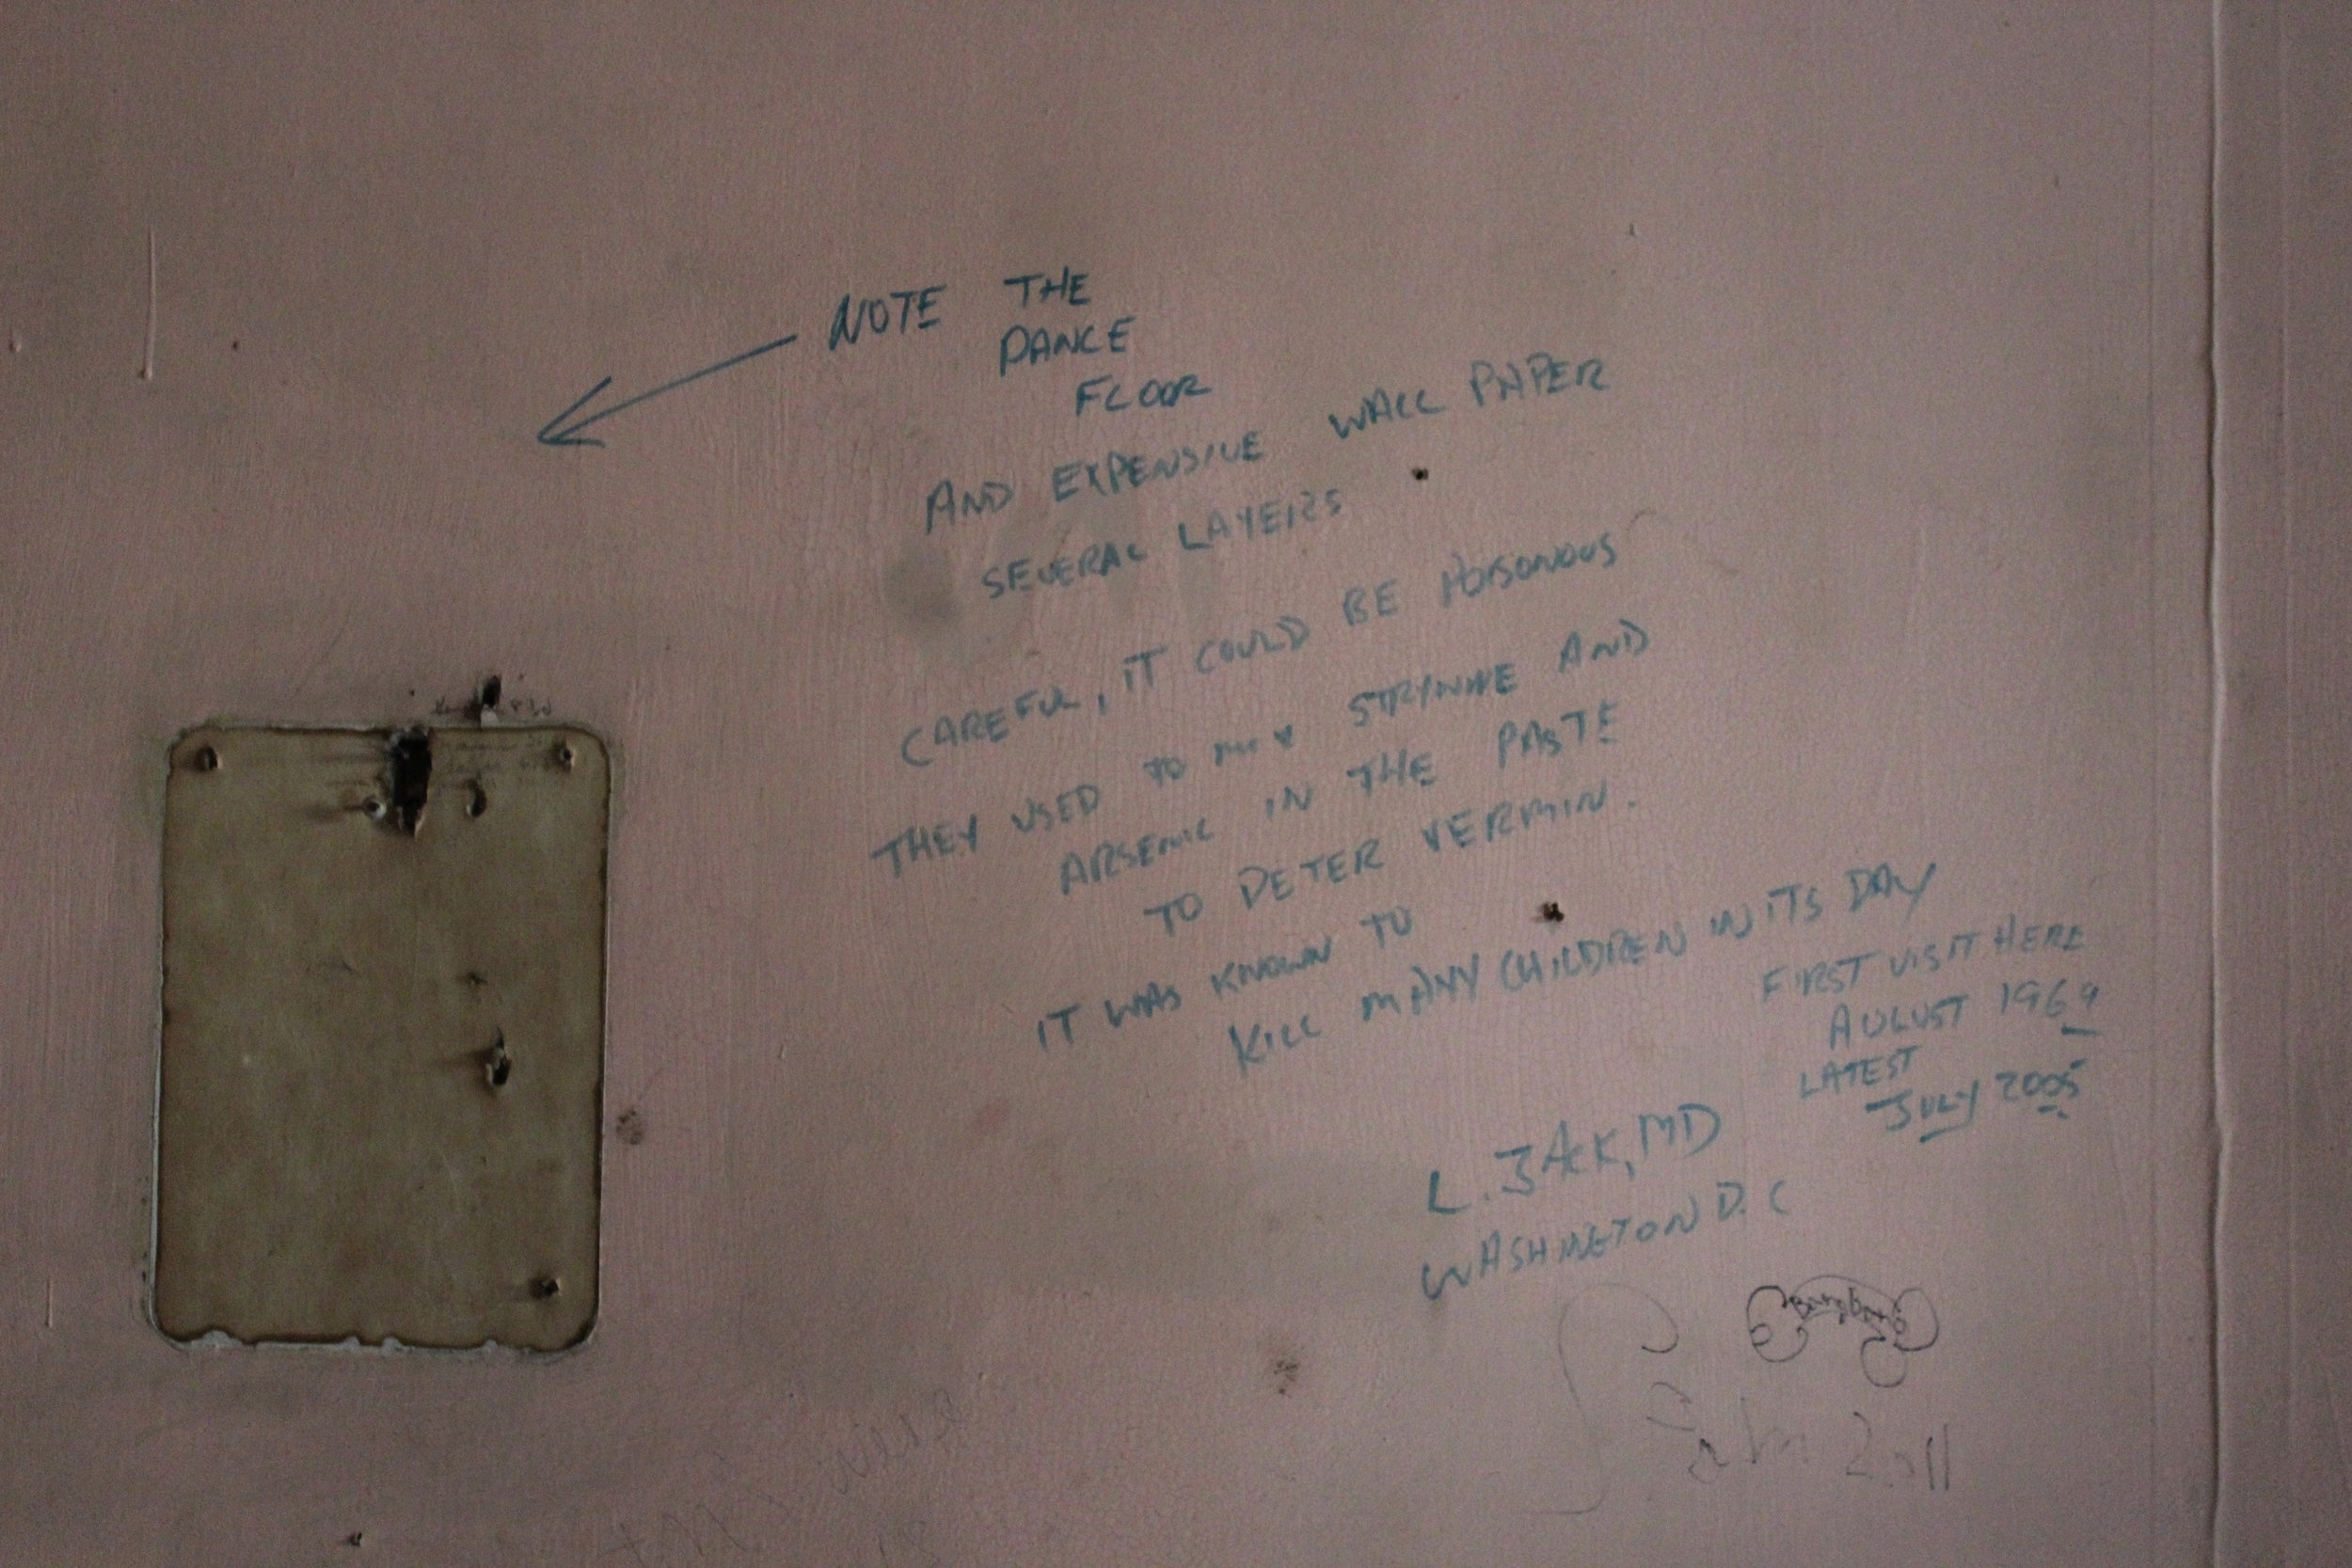 NOTE THE
DANCE
FLOOR
AND EXPENSIVE WALL PAPER
SEVERAL LAYERS
CAREFUL, IT COULD BE POISONOUS
THEY USED TO MIX STRYNINE AND
ARSENIC IN THE PASTE
TO DETER VERMIN.
IT WAS KNOWN TO
KILL MANY CHILDREN IN ITS DAY
FIRST VISIT HERE
AUGUST 1969
LATEST
JULY 2005
L. JACK, MD
WASHINGTON D.C